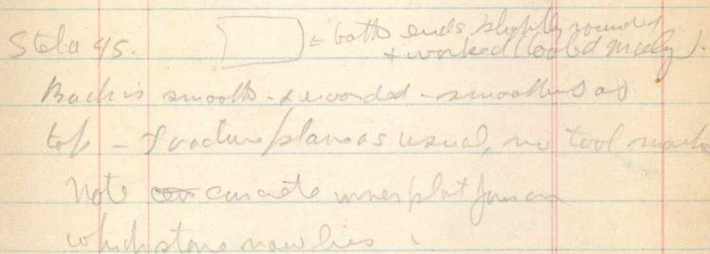 Stela 45. = both ends slightly rounded
& worked (tooled nicely).
Back is smooth - & rounded - smoothest at
top - fracture planes as usual, no tool marks
Note concrete inner platform on
which stone now lies.